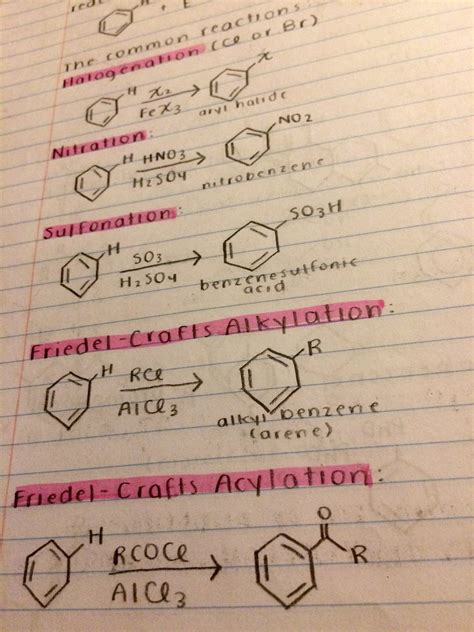 The common reactions:
Halogenation (Cl or Br)
H X2 X
FeX3 aryl halide
Nitration:
H HNO3 NO2
H2SO4 nitrobenzene
Sulfonation:
H SO3 SO3H
H2SO4 benzenesulfonic
acid
Friedel-Crafts Alkylation:
H RCl R
AlCl3 alkyl benzene
(arene)
Friedel-Crafts Acylation:
H RCOCl O
AlCl3 R